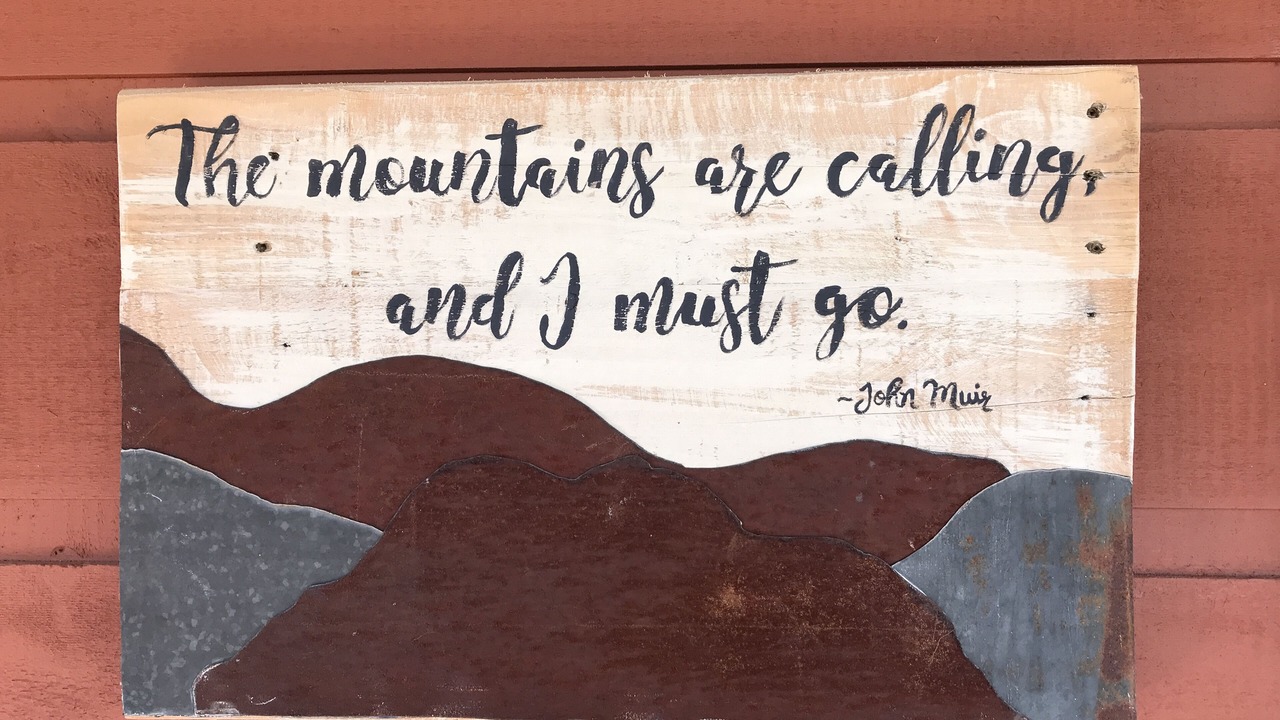 The mountains are calling,
and I must go.
~John Muir